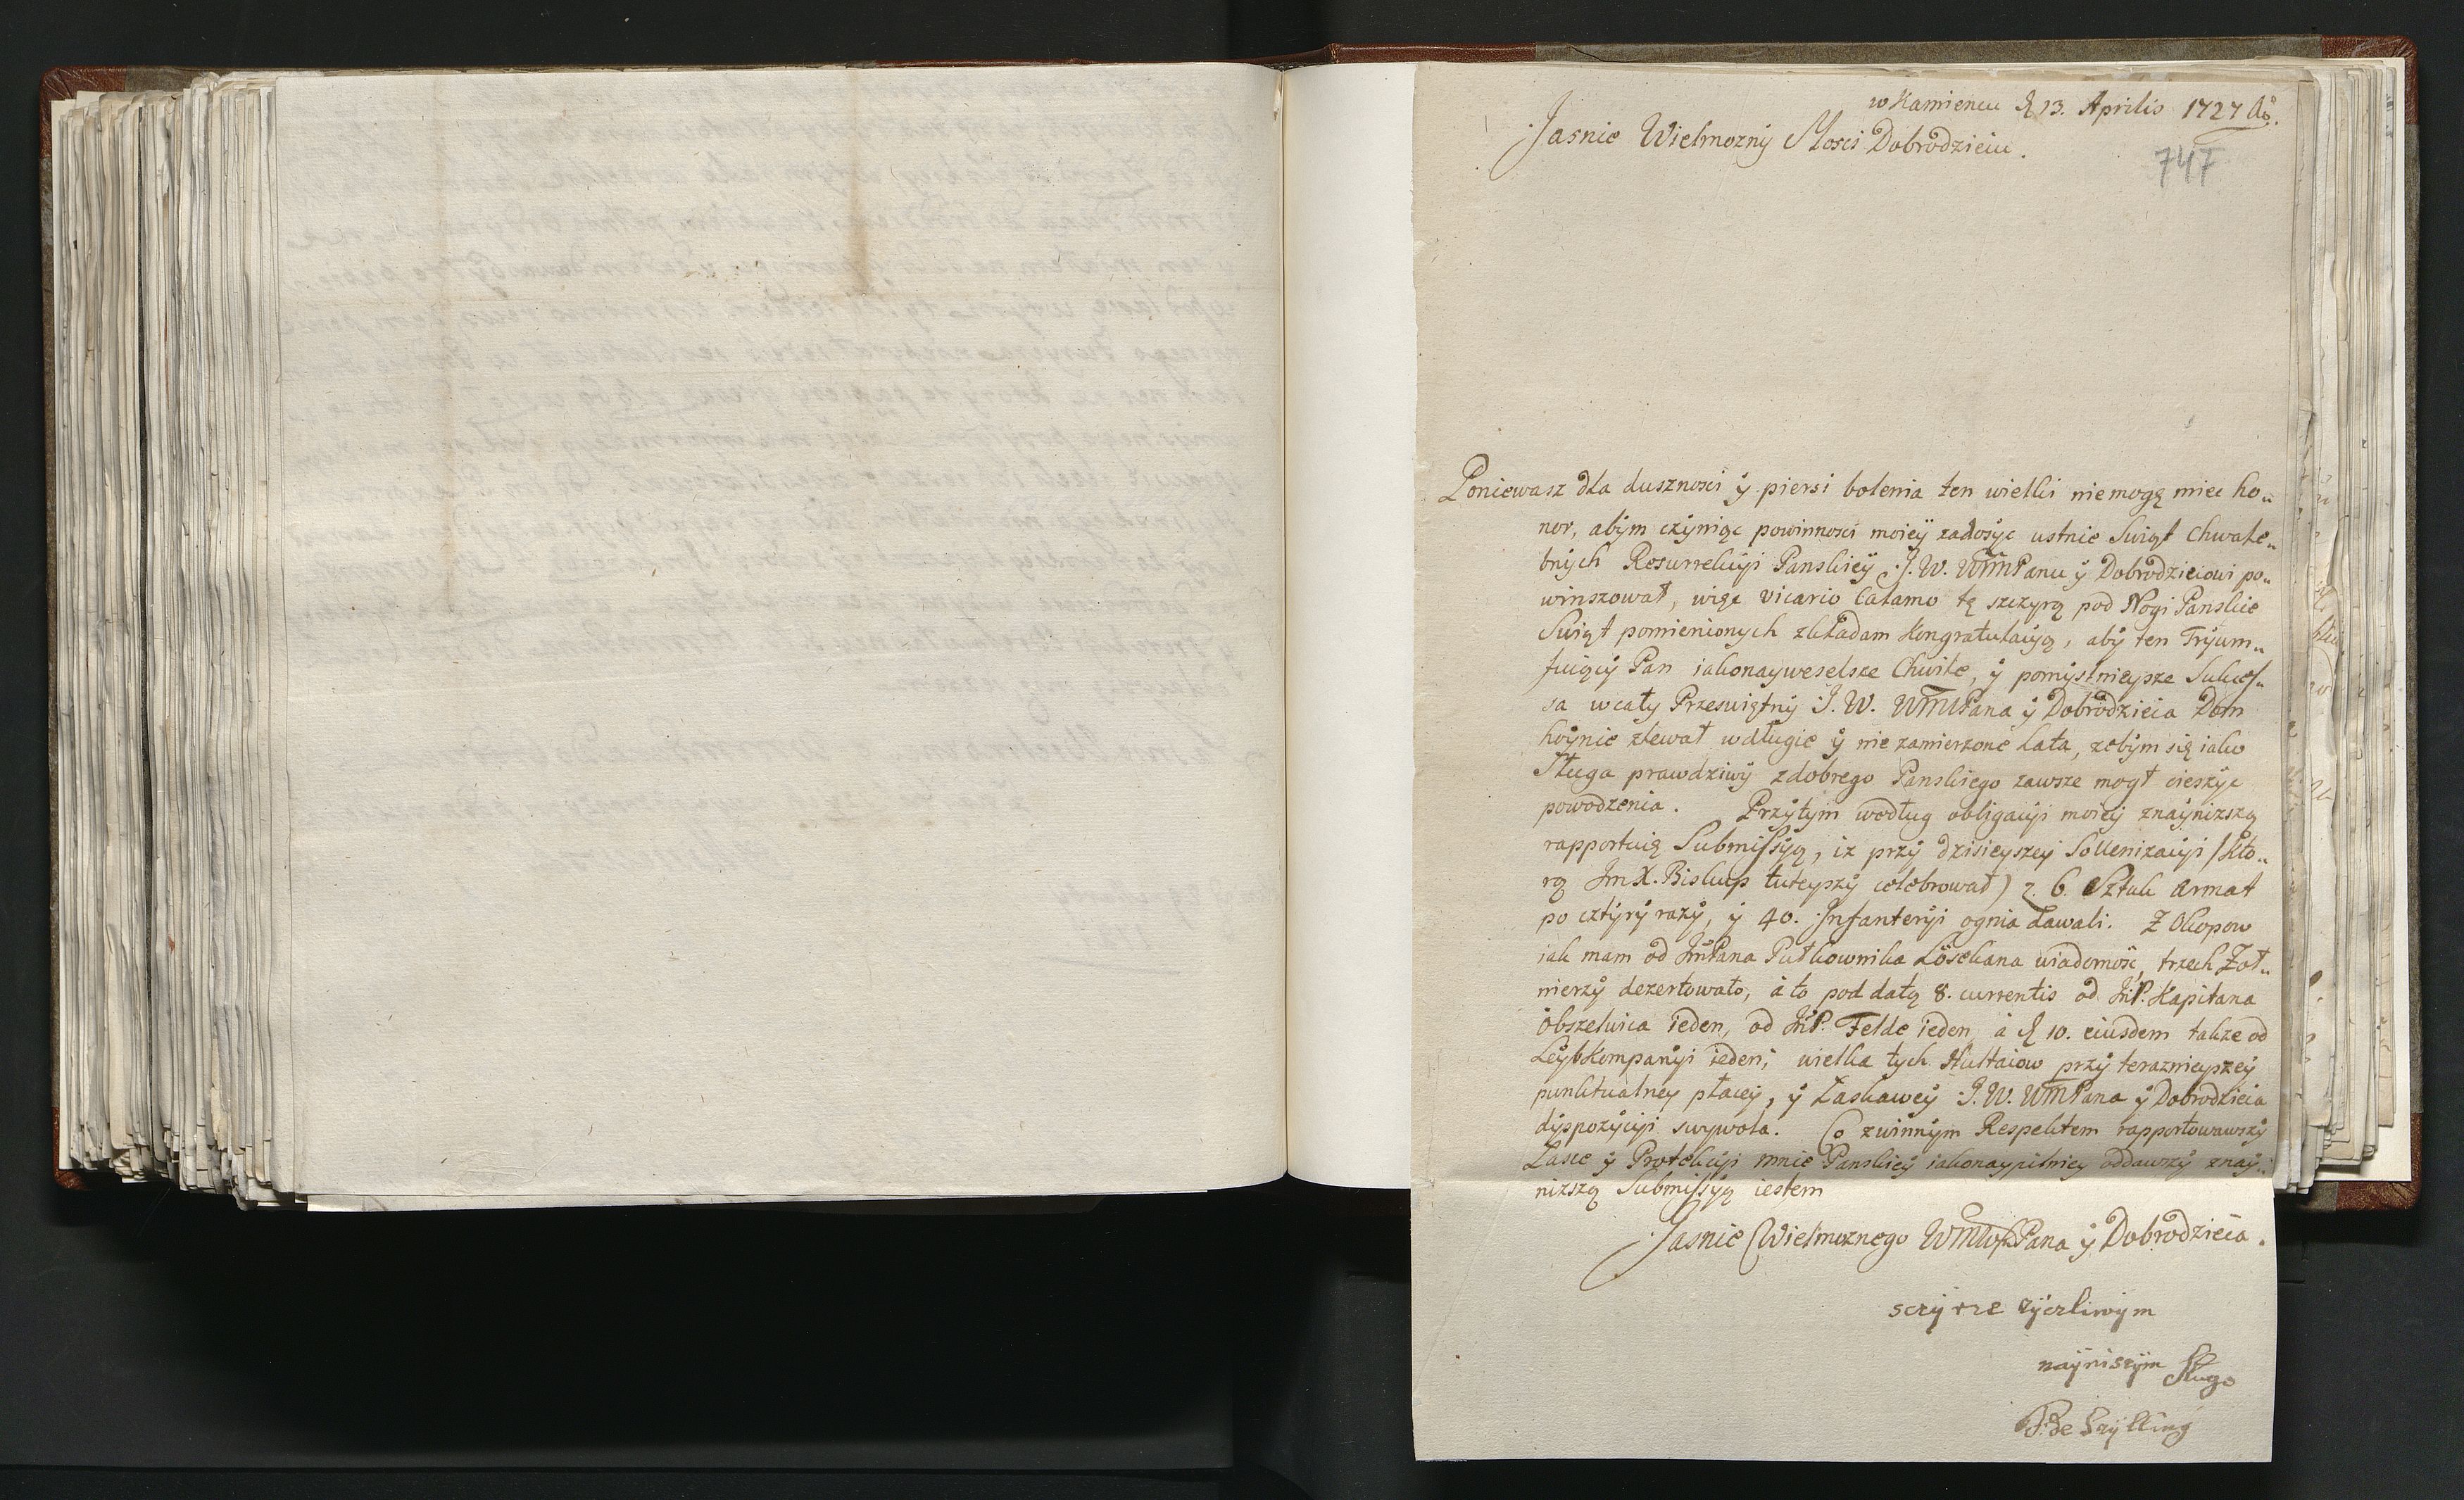 w Kamiencu d. 13. Aprilis 1727 Aō.
Jasnie Wielmozny Mosci Dobrodzieiu.
747
Poniewasz dla dusznosci ÿ piersi bolenia ten wielki niemogę miec ho„
nor, abÿm czÿniąc powinnosci moieÿ zadosÿc ustnie Swiąt Chwale„
bnÿch Resurrekcÿi Panskieÿ J. W. WMPanu ÿ Dobrodzieiowi po„
winszował, więc vicario Calamo tę szczyrą pod Nogi Panskie
Swiąt pomienionych zkładam Kongratulacÿą, abÿ ten Trÿum„
fuiącÿ Pan iakonayweselsze Chwile, ÿ pomÿslnieÿsze Sukces„
sa wcały Przeswiętnÿ J. W. WMPana ÿ Dobrodzieia Dom
hoÿnie zlewał wdługie ÿ nie zamierzone Lata, zebÿm się iako
Sługa prawdziwÿ zdobrego Panskiego zawsze mogł cieszÿc
powodzenia. Przÿtÿm według obligacÿi moieÿ znaÿnizszą
rapportuię Submissÿą, iz przÿ dzisieyszeÿ Sollenizacÿi /kto„
rą JmX. Biskup tuteÿszÿ celebrował) z. 6. Sztuk Armat
po cztÿrÿ razÿ, ÿ 40. Infanterÿi ognia dawali. Z Okopow
iak mam od JmPana Pułkownika Löschana wiadomosc, trzech Zoł„
nierzÿ dezertowało, à to pod datą 8. currentis od JmP. Kapitana
Obszelwica ieden, od JmP. Felde ieden, à d. 10. eiusdem takze od
LeÿbKompanÿi ieden; wielka tych Hultaiow przÿ teraznieÿszeÿ
punktualneÿ płaceÿ, ÿ Łaskaweÿ J. W. WMPana ÿ Dobrodzieia
dÿspozÿcÿi swywola. Co zwinnÿm Respektem rapportowawszÿ
Łasce ÿ Protekcÿi mnie Panskieÿ iakonaypilnieÿ oddawszÿ znaÿ„
nizszą Submissÿą iestem
Jasnie Wielmoznego WMPana ÿ Dobrodzieia.
sczÿrze zÿczliwÿm
naÿniszÿm Sługo